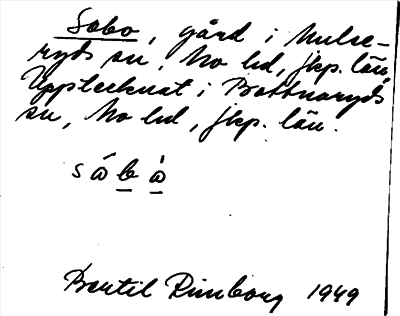 Sabo, gård i Mulse-
ryds sn, Mo hd, jkp. län.
Upptecknat i Bottnaryds
sn, Mo hd, jkp. län.
Bertil Rimborg 1949